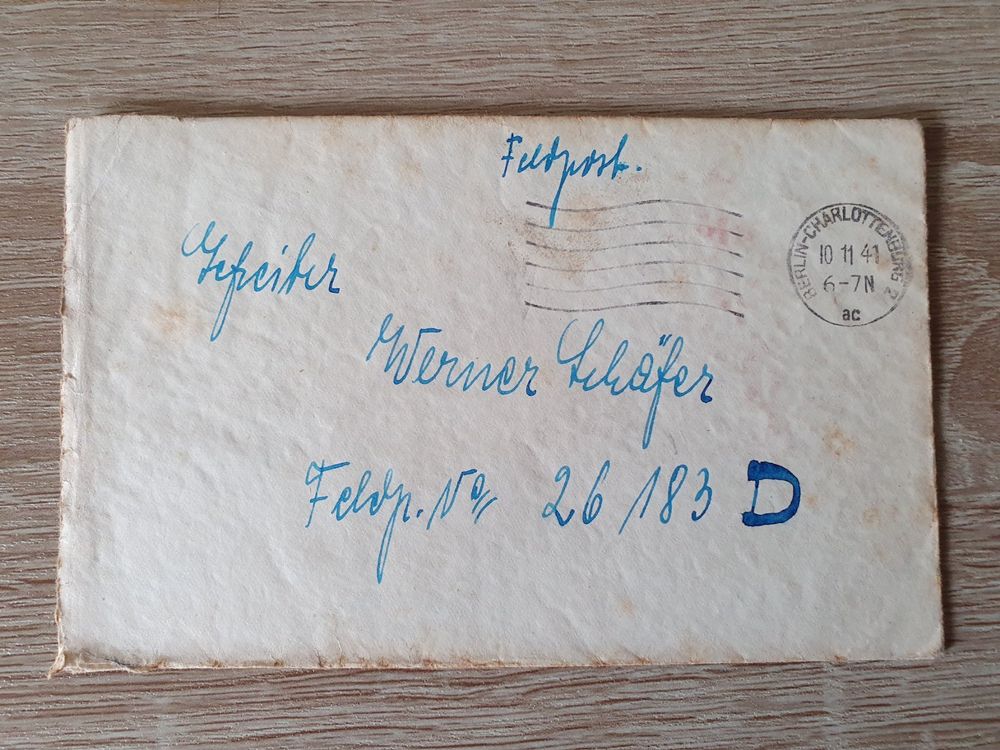 Feldpost.
BERLIN-CHARLOTTENBURG 2
10 11 41
6-7N
ac
Gefreiter
Werner Schäfer
Feldp. No 26 183 D